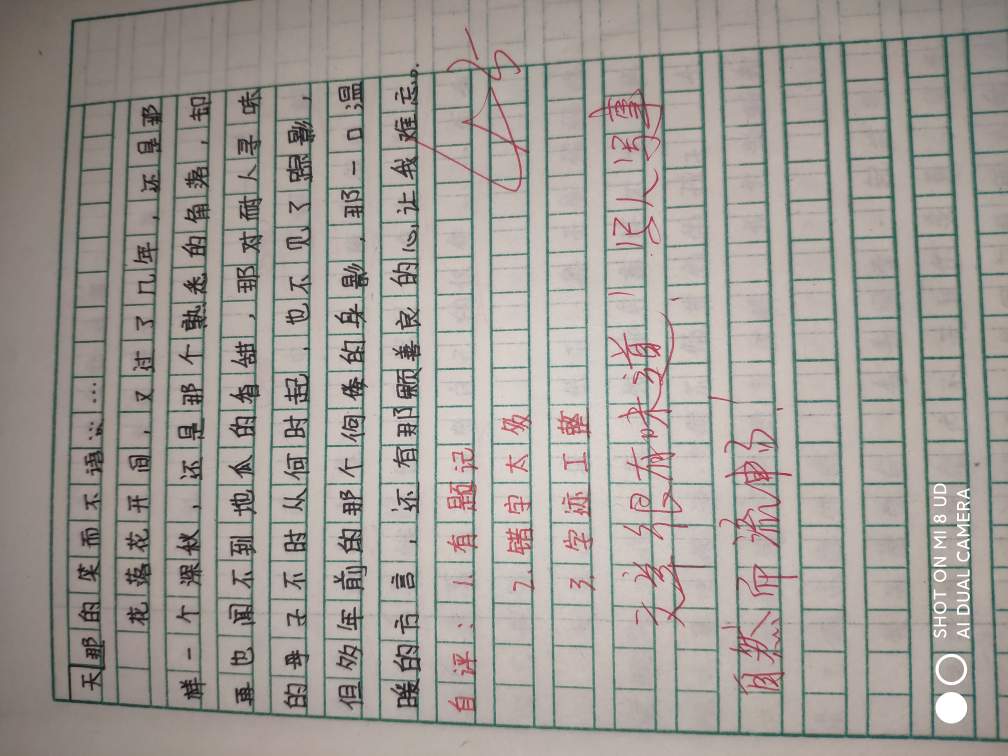 天那的笑而不语……
花落花开间，又过了几年，还是那
样一个深秋，还是那个熟悉的角落，却
再也闻不到地瓜的香甜，那对耐人寻味
的母子不时从何时起，也不见了踪影，
但多年前的那个佝偻的身影，那一口温
暖的方言，还有那颗善良的心，让我难忘。
自评：1.有题记
2.错字太多
3.字迹工整
文章很有味道，写人写事
自然而流畅
SHOT ON MI 8 UD
AI DUAL CAMERA